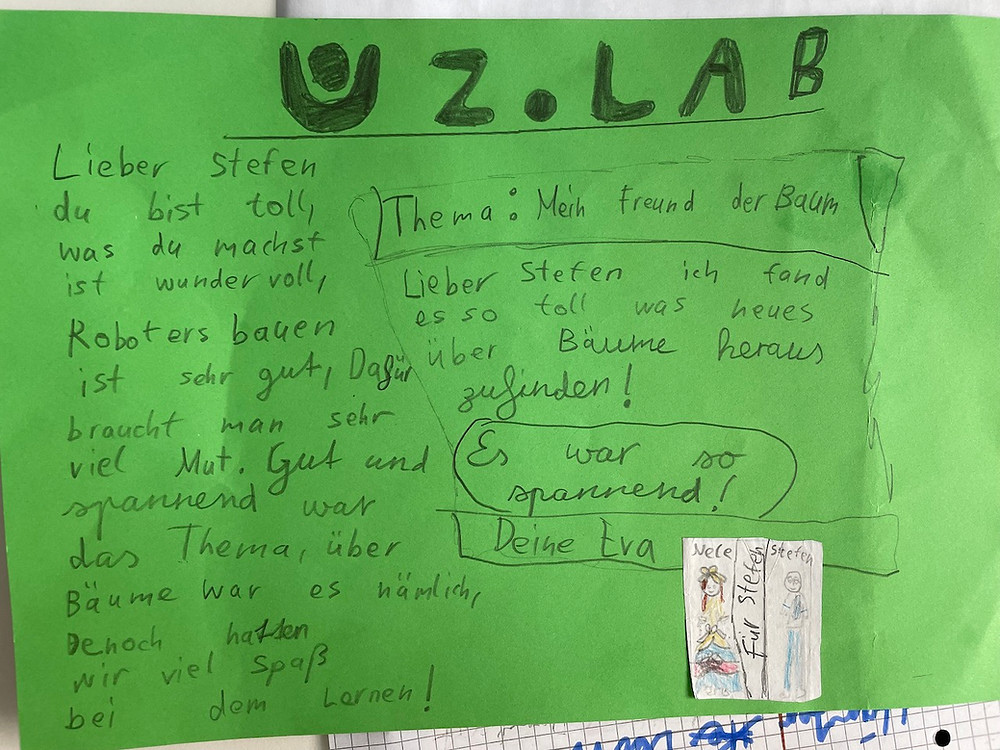 ÜZ.LAB
Lieber Stefen
du bist toll,
was du machst
ist wundervoll,
Roboters bauen
ist sehr gut, Dafür
braucht man sehr
viel Mut. Gut und
spannend war
das Thema, über
Bäume war es nämlich,
Denoch hatten
wir viel Spaß
bei dem Lernen!
Thema: Mein Freund der Baum
Lieber Stefen ich fand
es so toll was neues
über Bäume heraus
zufinden!
Es war so
spannend!
Deine Eva
Nele
Für Stefen
Stefen